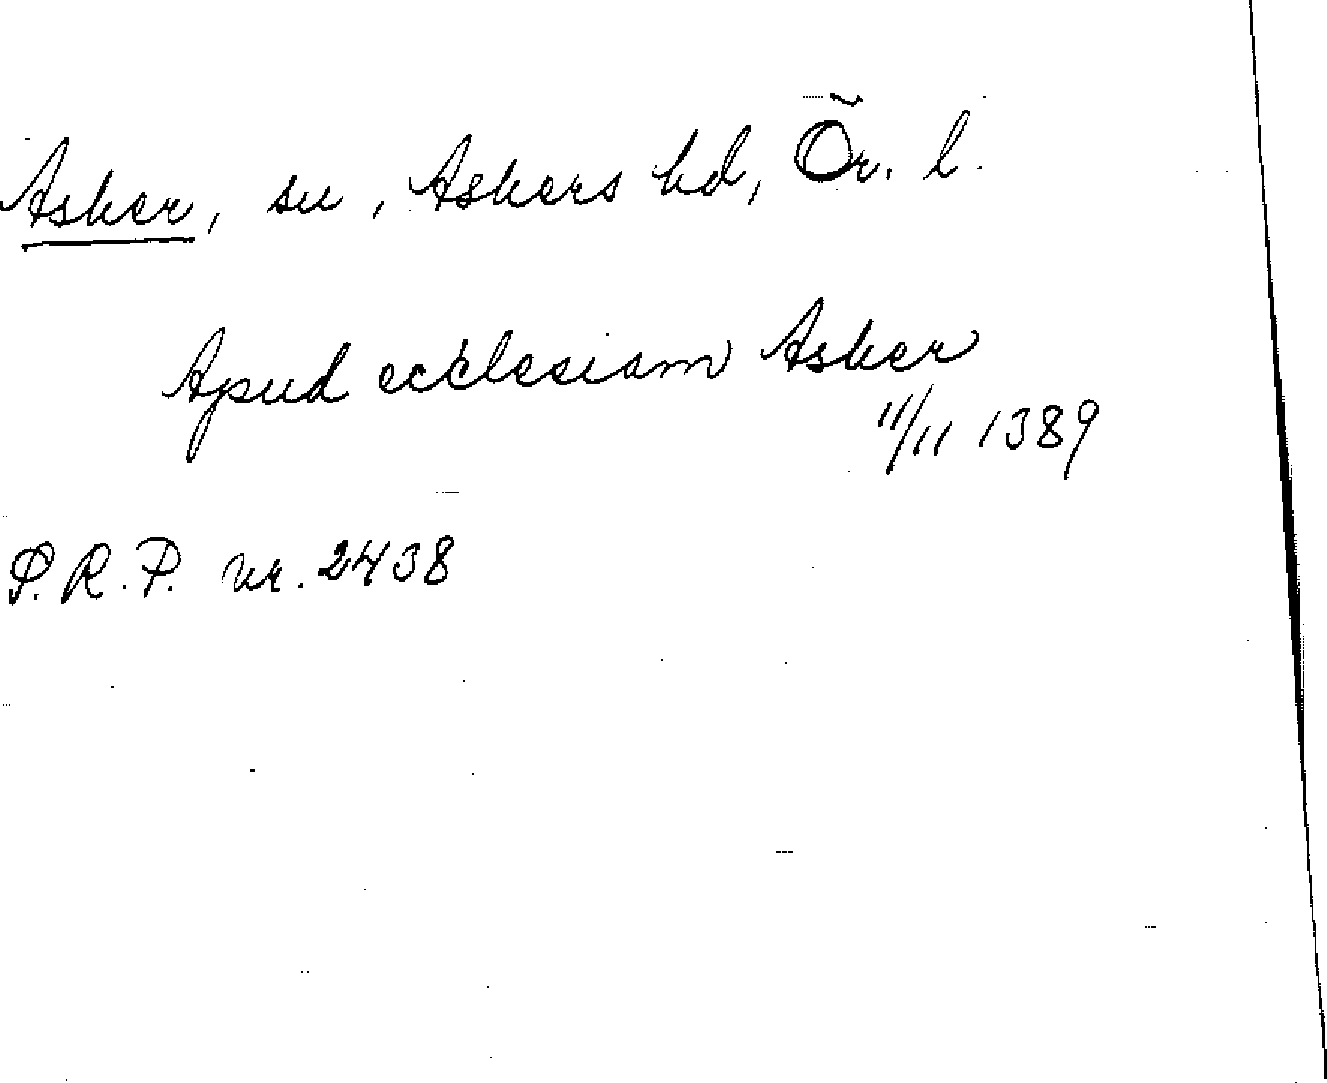 Asker, sn, Askers hd, Ör. l.
Apud ecclesiam Asker
11/11 1389
P.R.P. nr. 2438